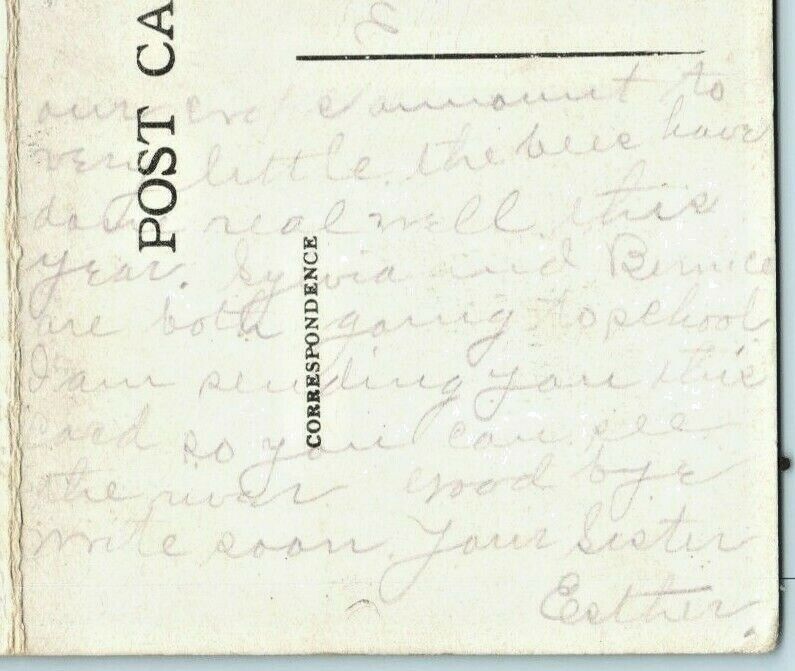 POST CA
CORRESPONDENCE
our crop amount to
very little. the bees have
done real well this
year. Sylvia and Bernice
are both going to school
I am sending you this
card so you can see
the river good bye
write soon. Your Sister
Esther.